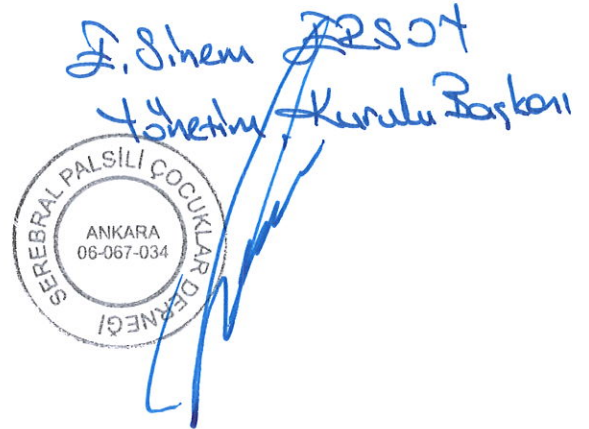 E. Sinem ERSOY
Yönetim Kurulu Başkanı
SEREBRAL PALSİLİ ÇOCUKLAR DERNEĞİ
ANKARA
06-067-034